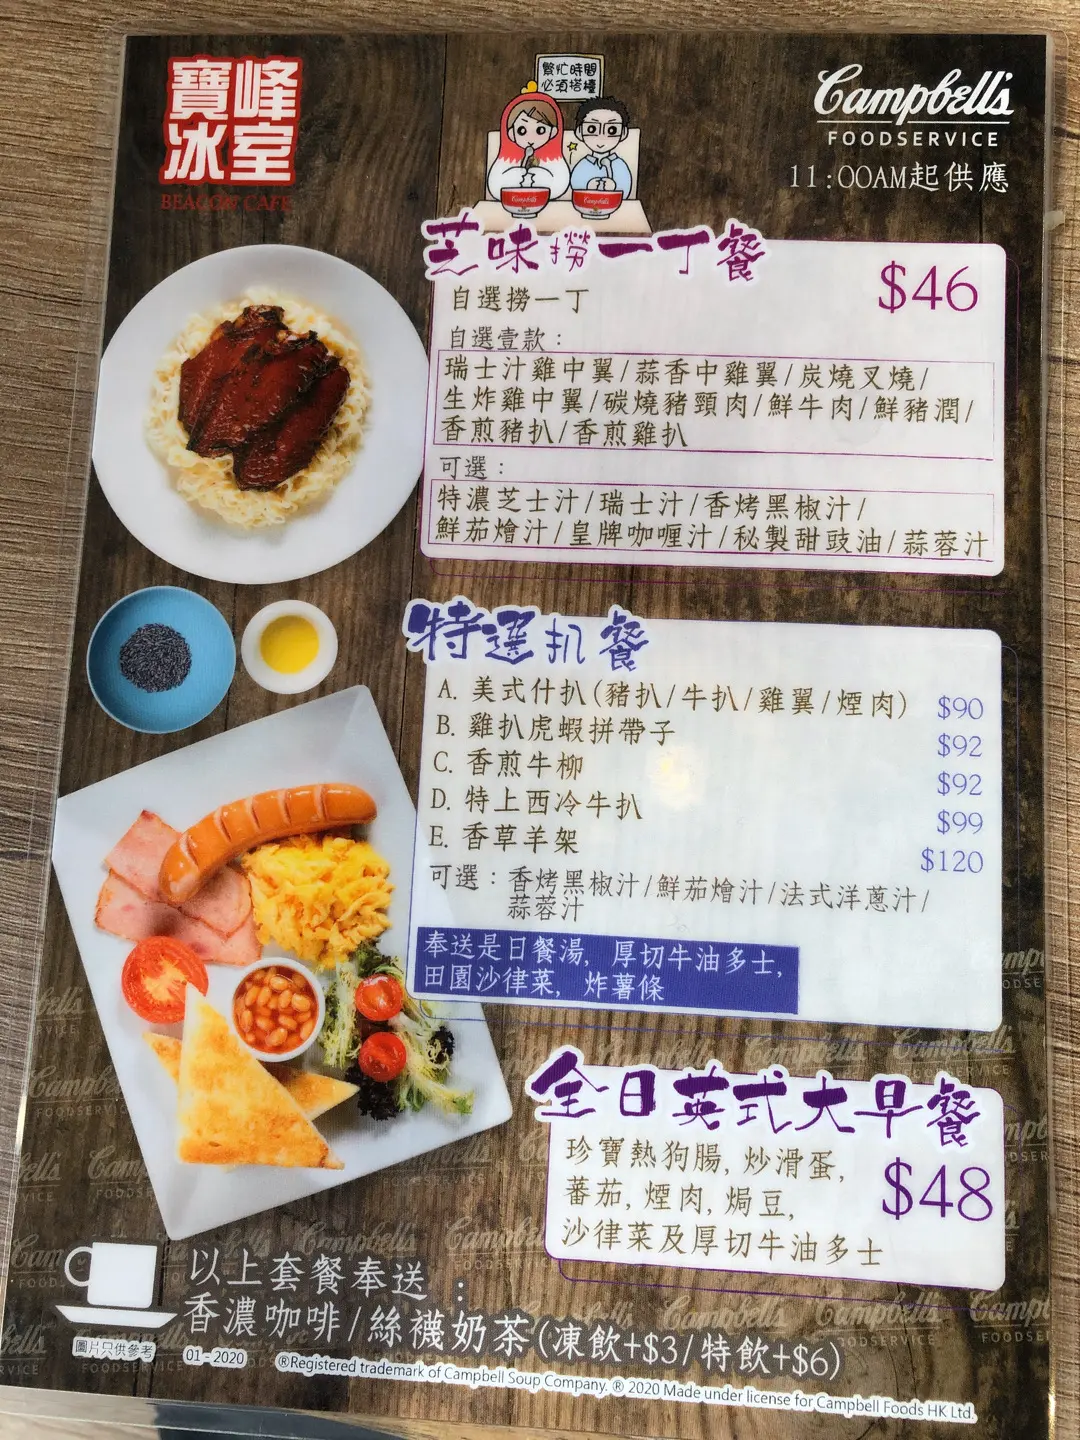 寶峰
冰室
BEACON CAFE
繁忙時間
必須搭檯
Campbell's
FOODSERVICE
11:00AM起供應
芝味撈一丁餐
$46
自選撈一丁
自選壹款:
瑞士汁雞中翼/蒜香中雞翼/炭燒叉燒/
生炸雞中翼/碳燒豬頸肉/鮮牛肉/鮮豬潤/
香煎豬扒/香煎雞扒
可選:
特濃芝士汁/瑞士汁/香烤黑椒汁/
鮮茄燴汁/皇牌咖喱汁/秘製甜豉油/蒜蓉汁
特選扒餐
A. 美式什扒(豬扒/牛扒/雞翼/煙肉) $90
B. 雞扒虎蝦拼帶子 $92
C. 香煎牛柳 $92
D. 特上西冷牛扒 $99
E. 香草羊架 $120
可選:香烤黑椒汁/鮮茄燴汁/法式洋蔥汁/
蒜蓉汁
奉送是日餐湯, 厚切牛油多士,
田園沙律菜, 炸薯條
全日英式大早餐
$48
珍寶熱狗腸, 炒滑蛋,
蕃茄, 煙肉, 焗豆,
沙律菜及厚切牛油多士
以上套餐奉送:
香濃咖啡/絲襪奶茶(凍飲+$3/特飲+$6)
圖片只供參考
01 - 2020
®Registered trademark of Campbell Soup Company. ® 2020 Made under license for Campbell Foods HK Ltd.